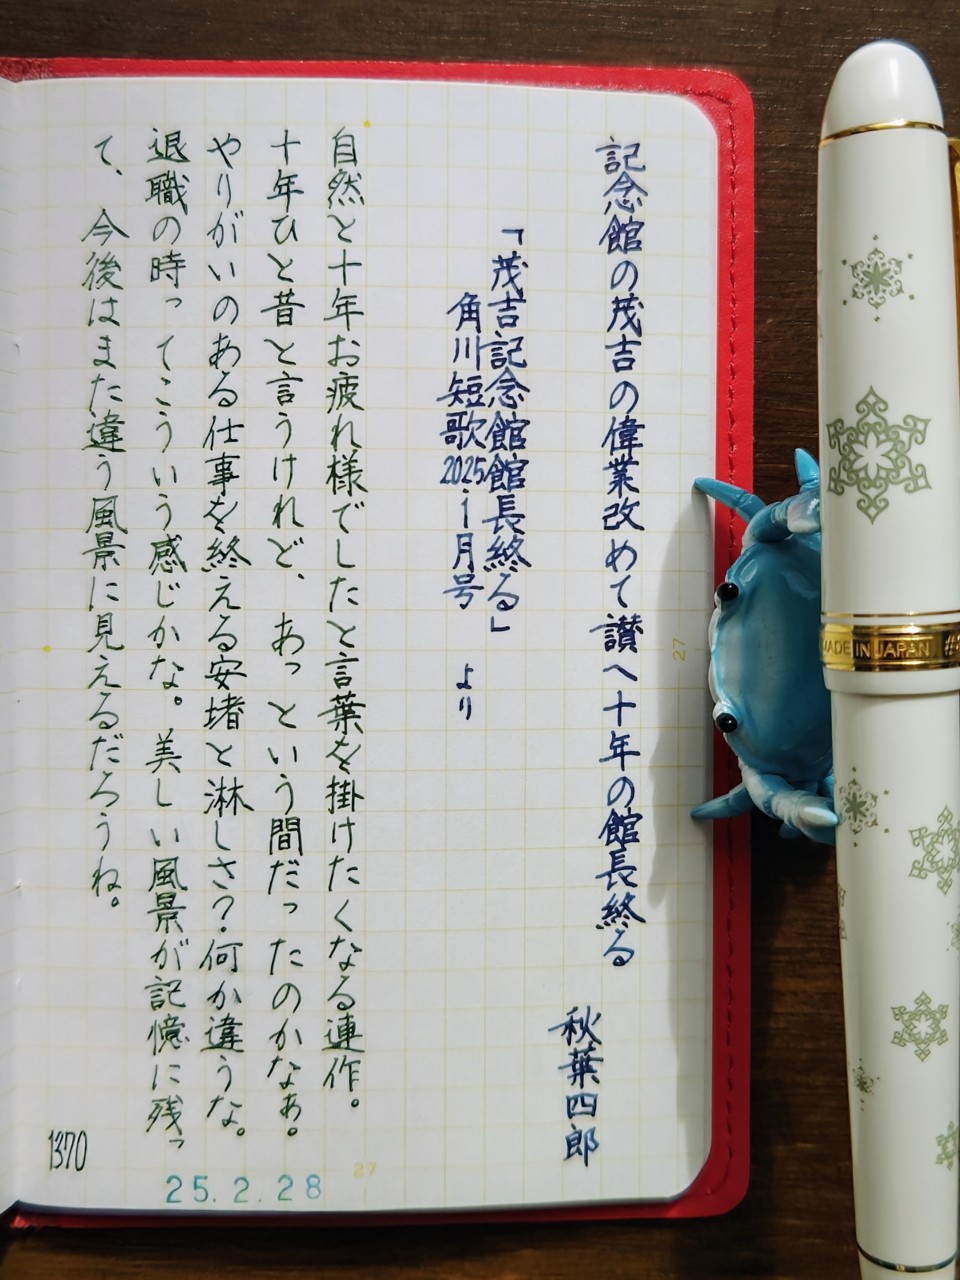 記念館の茂吉の偉業改めて讃へ十年の館長終る
秋葉四郎
「茂吉記念館館長終る」
角川短歌2025.1月号 より
自然と十年お疲れ様でしたと言葉を掛けたくなる連作。
十年ひと昔と言うけれど、あっという間だったのかなぁ。
やりがいのある仕事を終える安堵と淋しさ?何か違うな。
退職の時ってこういう感じかな。美しい風景が記憶に残っ
て、今後はまた違う風景に見えるだろうね。
1370
25.2.28
27
27
MADE IN JAPAN